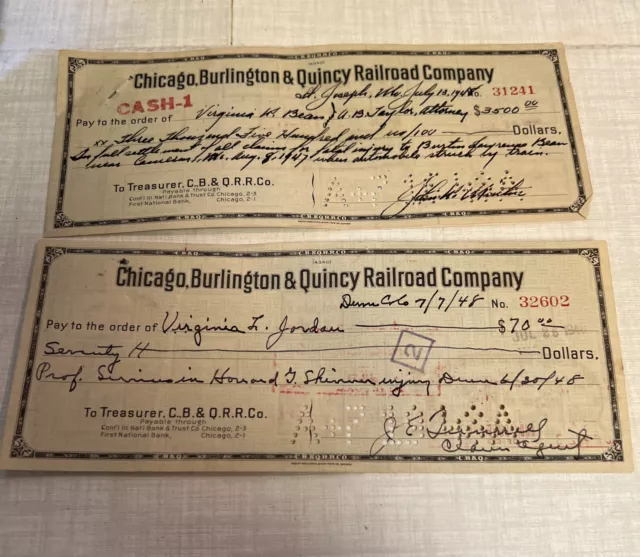 C.B.&Q.R.R.CO.
Chicago, Burlington & Quincy Railroad Company
St. Joseph, Mo, July 13, 1948 No. 31241
CASH-1
Pay to the order of Virginia K. Bean & A.B. Taylor, Attorney $3500 00
xx Three Thousand Five Hundred and no/100 Dollars.
In full settlement of all claims for fatal injury to Burton Bean
near Cameron, Mo. Aug. 9, 1947 when automobile struck by train.
To Treasurer, C.B. & Q.R.R.Co.
Payable through
Cont'l Ill. Nat'l Bank & Trust Co. Chicago, 2-3
First National Bank, Chicago, 2-1
C.B.&Q.R.R.CO.
Chicago, Burlington & Quincy Railroad Company
Colo 7/7/48 No. 32602
Pay to the order of Virginia L. Jordan $70 00
Seventy Dollars.
2
Prof. Services in Howard G. injury 6/20/48
To Treasurer, C.B. & Q.R.R.Co.
Payable through
Cont'l Ill. Nat'l Bank & Trust Co. Chicago, 2-3
First National Bank, Chicago, 2-1
Claim Agent